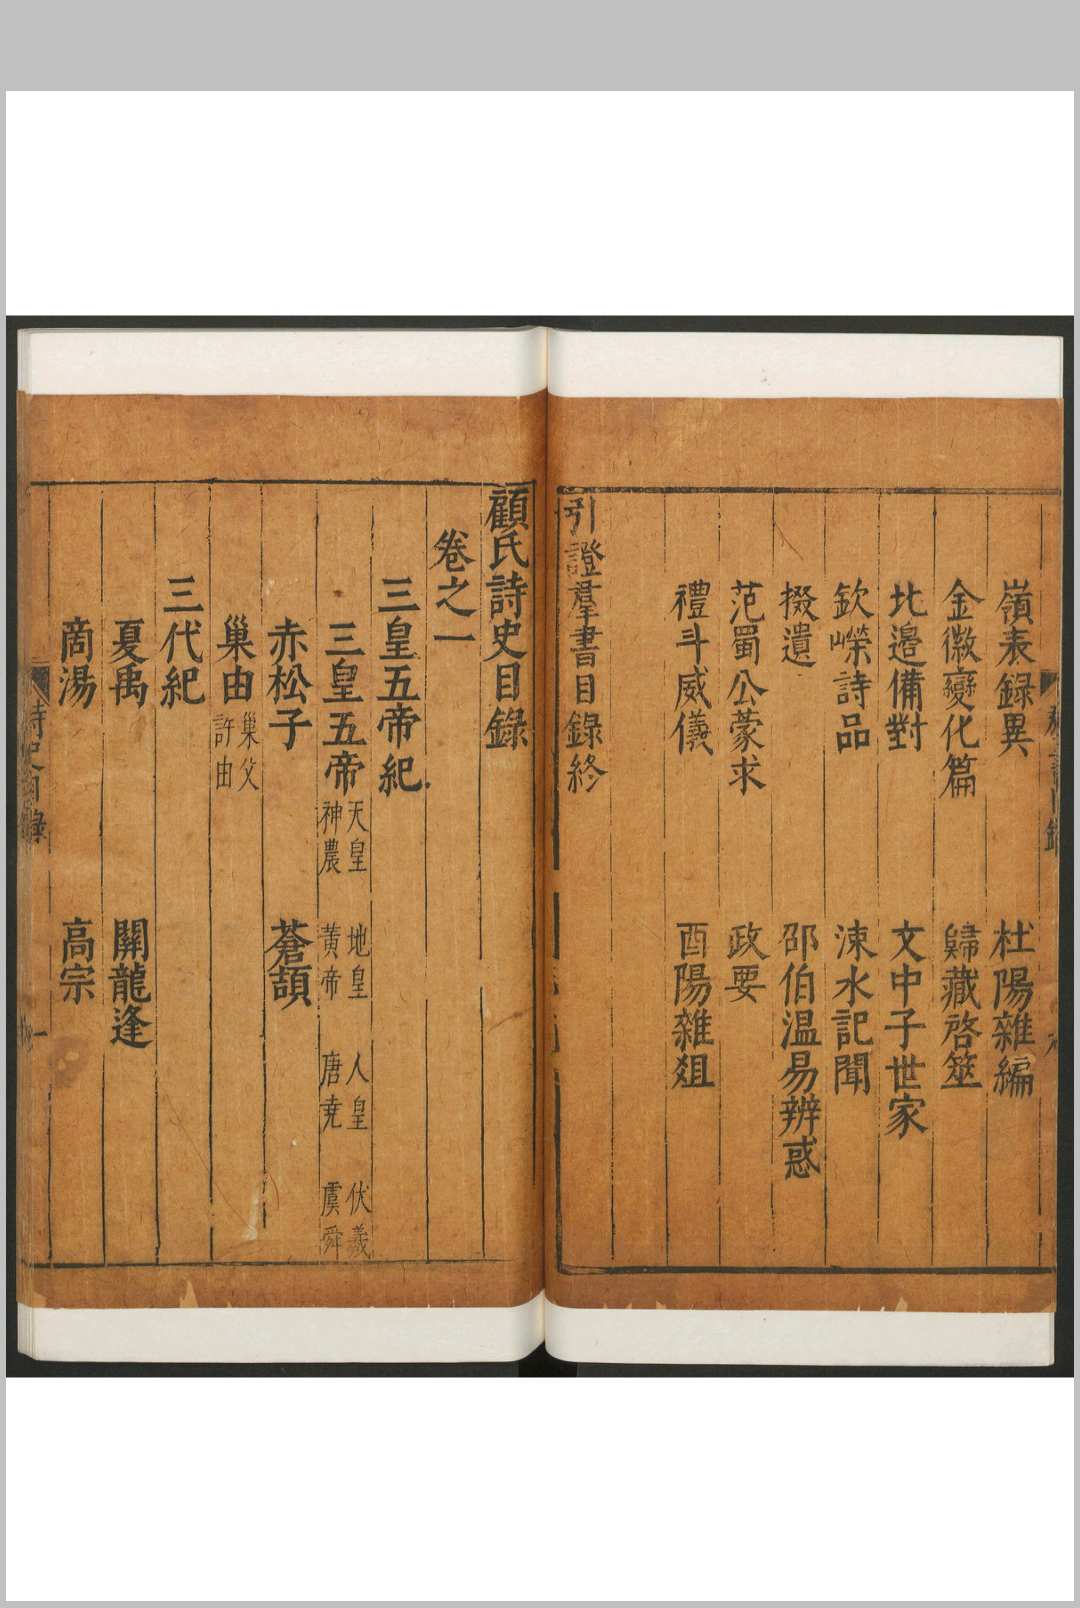 嶺表録異　杜陽雜編
金徽變化篇　歸藏啓筮
北邉備對　文中子世家
欽嶸詩品　涑水記聞
掇遺　邵伯温易辨惑
范蜀公蒙求　政要
禮斗威儀　酉陽雜爼
引證羣書目録終
顧氏詩史目録
卷之一
三皇五帝紀
三皇五帝　天皇　地皇　人皇　伏羲
神農　黄帝　唐尭　虞舜
赤松子　蒼頡
巢由　巢父
許由
三代紀
夏禹　關龍逢
商湯　高宗
詩史目録　一